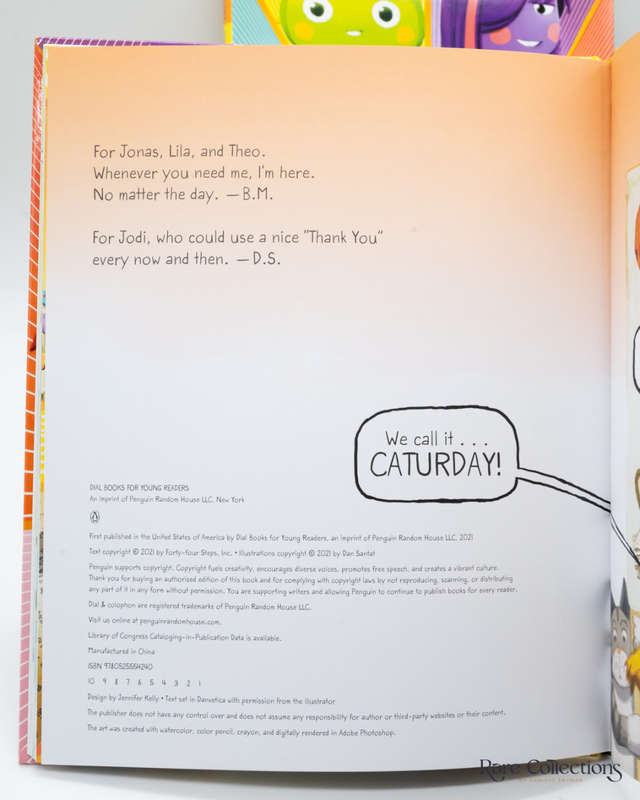 For Jonas, Lila, and Theo.
Whenever you need me, I'm here.
No matter the day. —B.M.
For Jodi, who could use a nice "Thank You"
every now and then. —D.S.
We call it . . .
CATURDAY!
DIAL BOOKS FOR YOUNG READERS
An imprint of Penguin Random House LLC, New York
First published in the United States of America by Dial Books for Young Readers, an imprint of Penguin Random House LLC, 2021
Text copyright © 2021 by Forty-four Steps, Inc. • Illustrations copyright © 2021 by Dan Santat
Penguin supports copyright. Copyright fuels creativity, encourages diverse voices, promotes free speech, and creates a vibrant culture.
Thank you for buying an authorized edition of this book and for complying with copyright laws by not reproducing, scanning, or distributing
any part of it in any form without permission. You are supporting writers and allowing Penguin to continue to publish books for every reader.
Dial & colophon are registered trademarks of Penguin Random House LLC.
Visit us online at penguinrandomhouse.com.
Library of Congress Cataloging-in-Publication Data is available.
Manufactured in China
ISBN 9780525554240
10 9 8 7 6 5 4 3 2 1
Design by Jennifer Kelly • Text set in Danvetica with permission from the illustrator
The publisher does not have any control over and does not assume any responsibility for author or third-party websites or their content.
The art was created with watercolor, color pencil, crayon, and digitally rendered in Adobe Photoshop.
Rare Collections